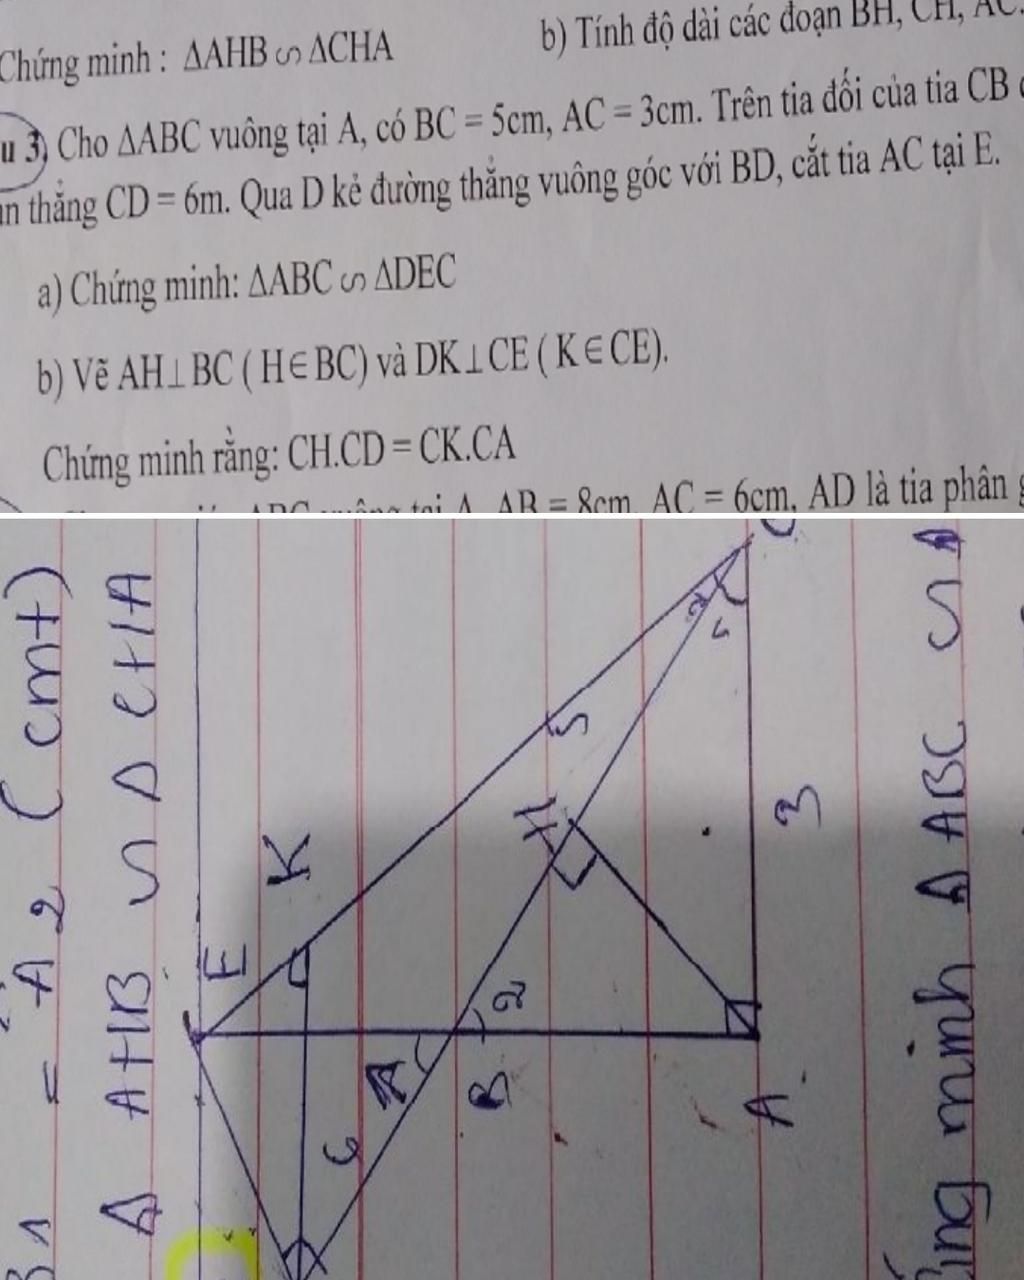 Chứng minh : ΔAHB ∽ ΔCHA b) Tính độ dài các đoạn BH, CH, AC.
u 3) Cho ΔABC vuông tại A, có BC = 5cm, AC = 3cm. Trên tia đối của tia CB
thẳng CD = 6m. Qua D kẻ đường thẳng vuông góc với BD, cắt tia AC tại E.
a) Chứng minh: ΔABC ∽ ΔDEC
b) Vẽ AH⊥BC ( H∈BC) và DK⊥CE ( K∈CE).
Chứng minh rằng: CH.CD = CK.CA
ABC vuông tại A, AB = 8cm, AC = 6cm, AD là tia phân
= A2 (cmt)
Δ AHB ∽ Δ CHA
E
K
H
5
2
1
C
A
2
B
6
3
A
minh Δ ABC ∽ Δ